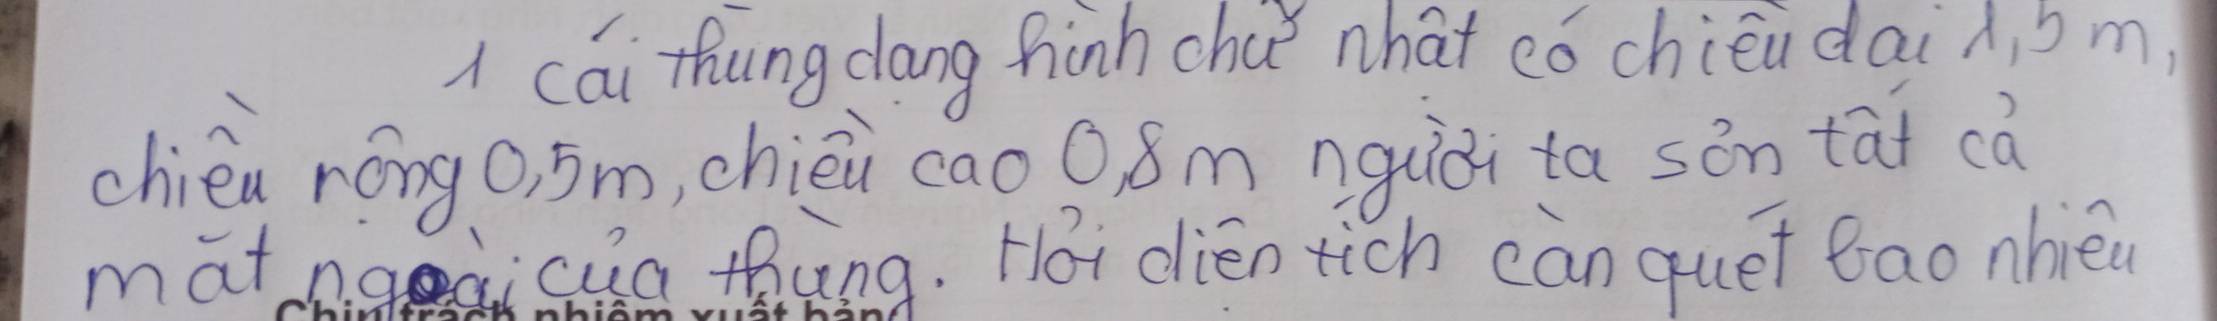 1 cái thùng dạng hình chữ nhật có chiều dài 1,5 m,
chiều rộng 0,5m, chiều cao 0,8m người ta sơn tất cả
mặt ngoài của thùng. Hỏi diện tích cần quét bao nhiêu
trách nhiệm xuất bản